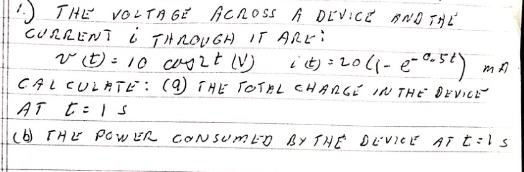 1.) THE VOLTAGE ACROSS A DEVICE AND THE
CURRENT i THROUGH IT ARE:
v(t) = 10 cos2t (V) i(t) = 20(1-e^-0.5t) mA
CALCULATE: (a) THE TOTAL CHARGE IN THE DEVICE
AT t=1 s
(b) THE POWER CONSUMED BY THE DEVICE AT t=1s